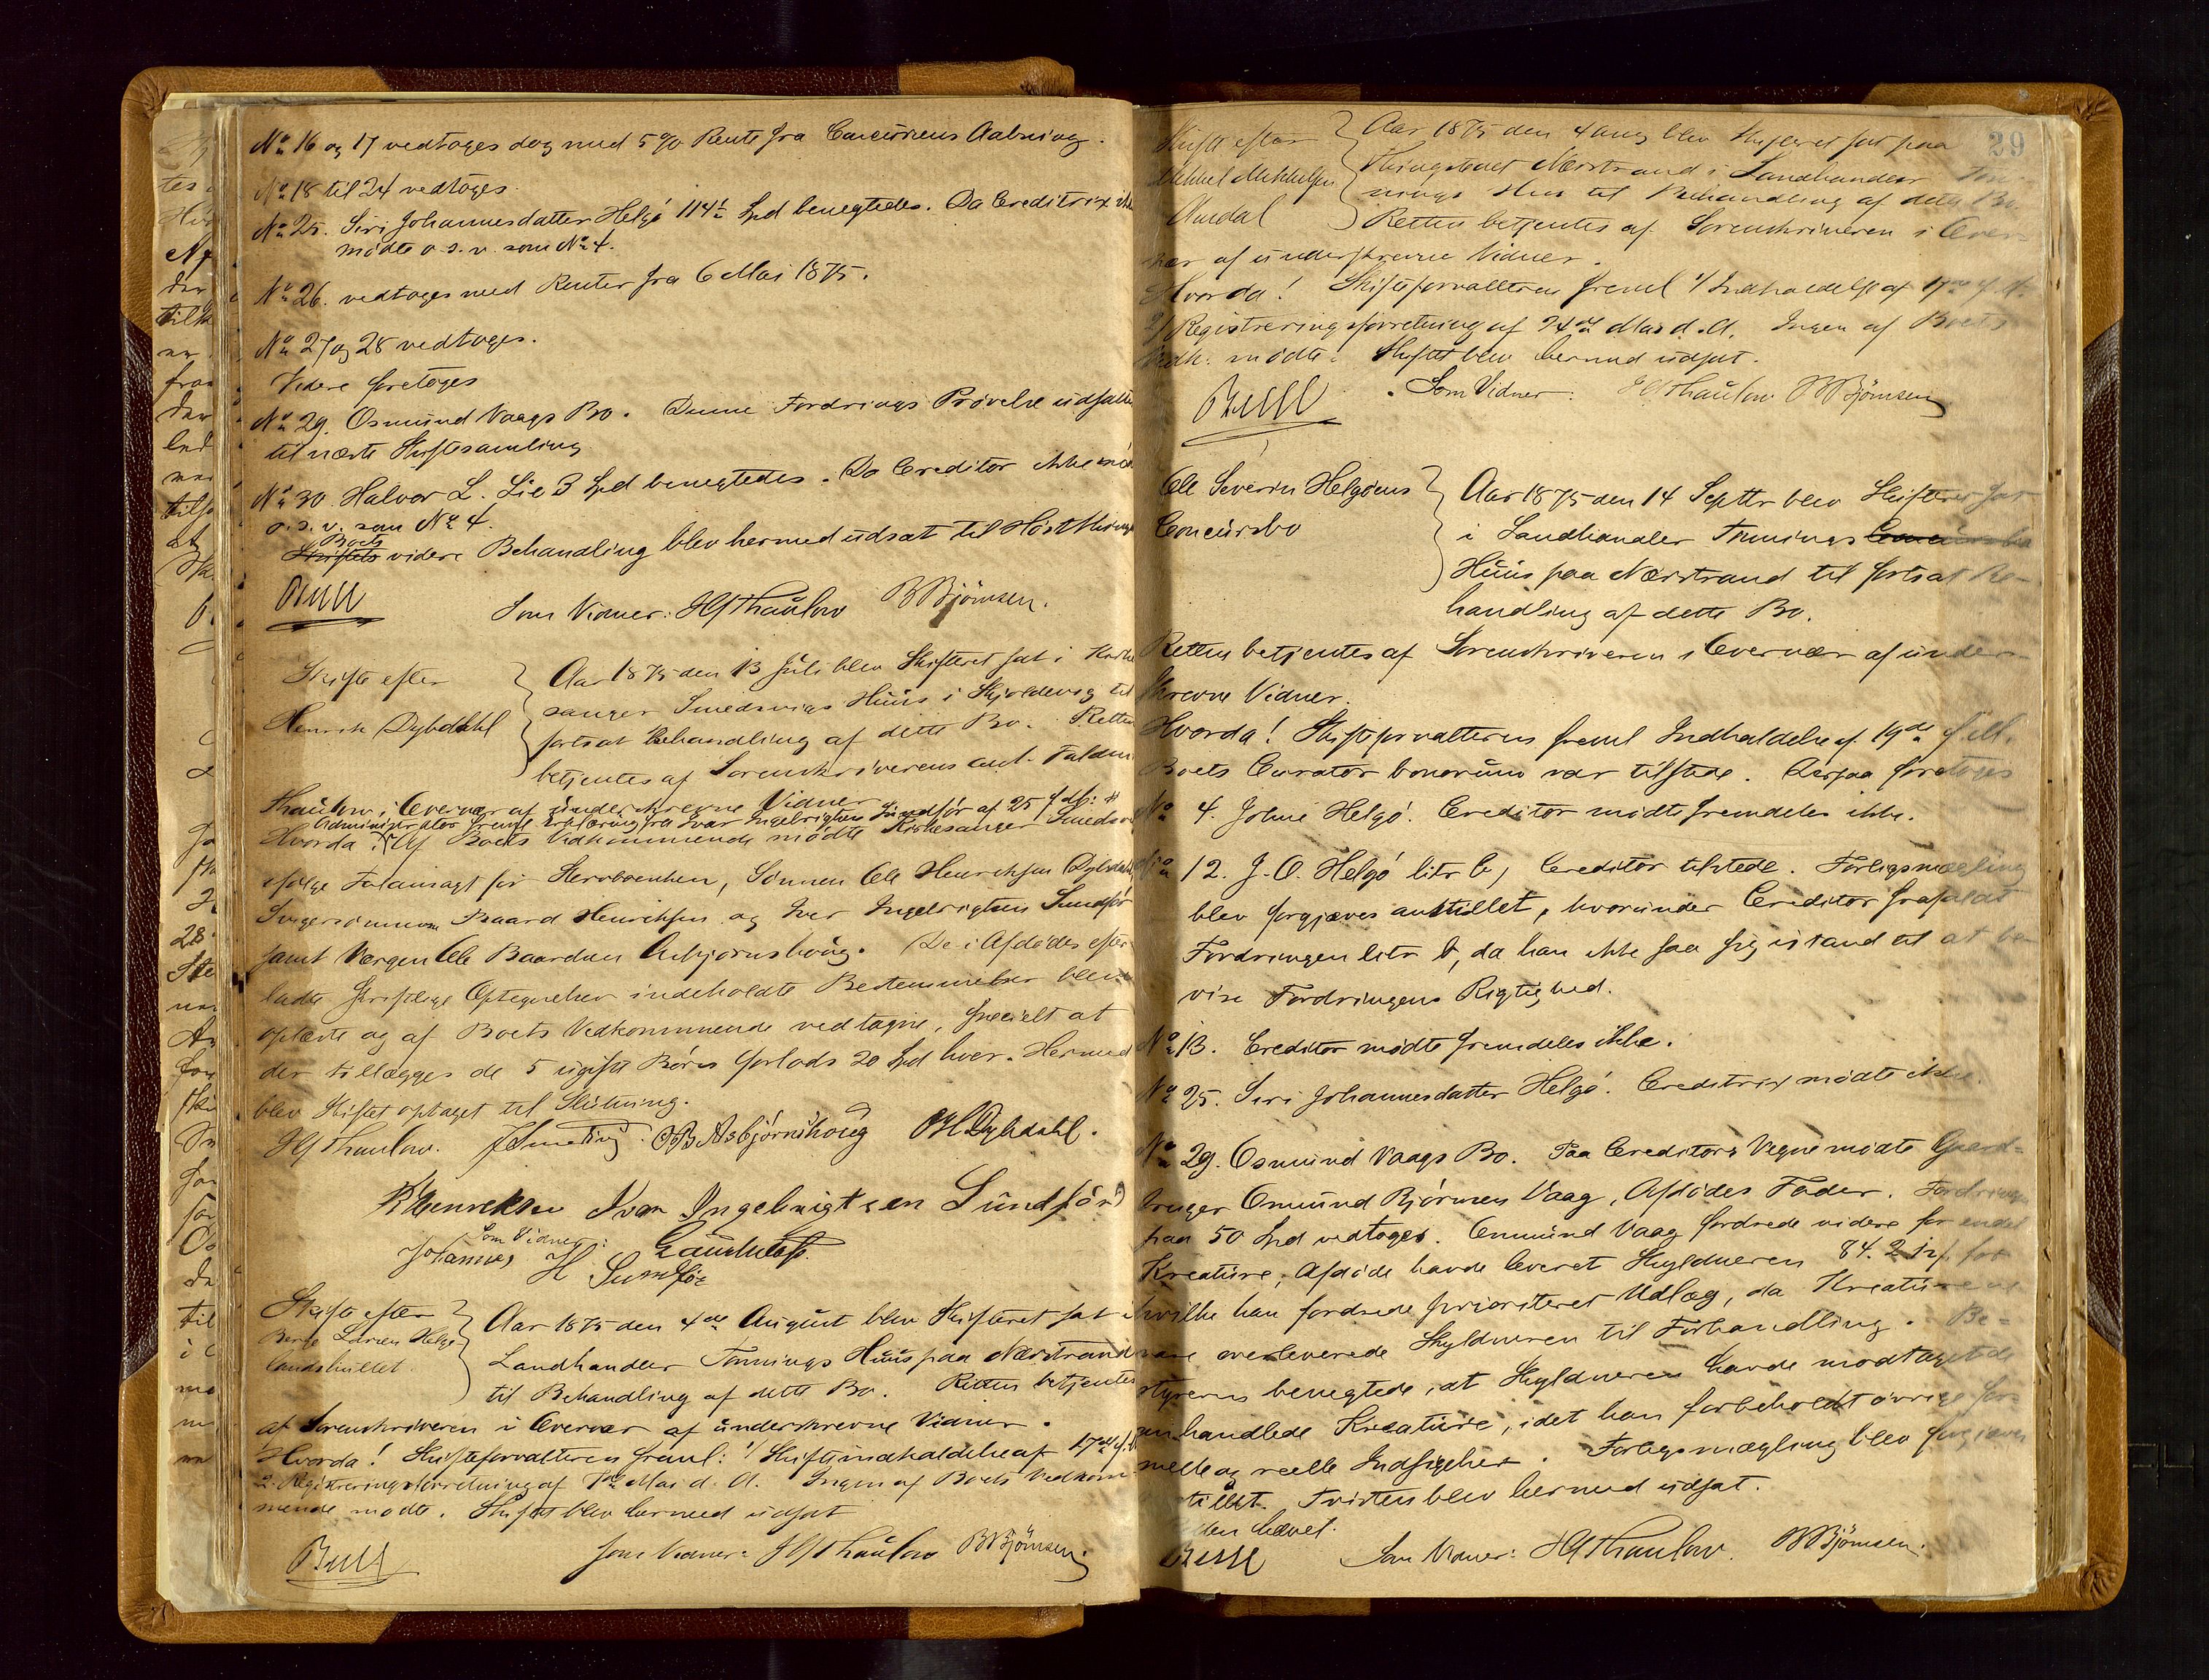 No 16 og 17 vedtoges dog med 5 % Rente fra Concursens Aabning.
No 18 til 24 vedtoges.
No 25. Siri Johannesdatter Helgö 114½ Spd benegtedes. Da Creditrix ikke
mödte o. s. v. som No 4.
No 26. vedtoges med Renter fra 6 Mai 1875.
No 27 og 28 vedtoges.
Videre foretoges
No 29. Osmund Vaags Bo. Denne Fordrings Prövelse udsattes
til næste Skiftesamling
No 30 Halvor L. Lie 3 Spd benegtedes. Da Creditor ikke
o. s. v. som No 4.
Boets
Skiftets videre Behandling blev hermed udsat til Höstthinget
Bull
Som Vidner: HGThaulow BBjörnsen.
Skifte efter
Henrik Dybdahl
Aar 1875 den 13 Juli blev Skifteret sat i Kirke
sanger Smedsvigs Huus i Skjoldevig til
fortsat Behandling af dette Bo. Retten
betjentes af Sorenskriverens aut. Fuldm
Thaulow, i Overvær af underskrevne Vidner
Administrator freml. Erklæring fra Ivar Ingebrigtsen Sundför af 25 f. M.
Hvorda! Af Boets Vedkommende mödte Kirkesanger Smedsvig
ifölge Fuldmagt for Stervboenken, Sönnen Ole Henriksen Dybdahl
Svigersönnerne Baard Henriksen og Iver Ingebrigtsen Sundför
samt Værgen Ole Baardsen Asbjörnshoug. De i Afdödes efter
ladte skriftlige Optegnelser indeholdte Bestemmelser blev
oplæste og af Boets Vedkommende vedtagne, specielt at
der tillægges de 5 ugifte Börn forlods 20 Spd hver. Hermed
blev Skiftet optaget til Slutning.
HGThaulow. JSmedsvig. OBAsbjörnshoug OHDybdahl.
BHenriksen Ivar Ingebrigtsen Sundför
Som Vidner:
Johannes H Sundför
Skifte efter
Berge Larsen Helge
landshullet.
Aar 1875 den 4de August blev Skifteret sat i
Landhandler Tönnings Huus paa Nærstrand
til Behandling af dette Bo. Retten betjentes
af Sorenskriveren i Overvær af underskrevne Vidner.
Hvorda! Skifteforvalteren freml: 1/ Skifteindkaldelse af 17de f. M.
2. Registreringsforretning af Mai d. A. Ingen af Boets Vedkom-
mende mödte. Skiftet blev hermed udsat
Bull
Som Vidner: HGThaulow BBjörnsen.
29
Skifte efter
Mikkel Mikkelsen
Aar 1875 den 4 Aug blev Skifteret sat paa
Thingstedet Nærstrand i Landhandler Tön-
nings Hus til Behandling af dette Bo.
Retten betjentes af Sorenskriveren i Over-
vær af underskrevne Vidner.
Hvorda! Skifteforvalteren freml 1/ Indkaldelse af 17de f. M.
2/ Registreringsforretning af 24de Mai d. A. Ingen af Boets
Vedk. mödte. Skiftet blev hermed udsat.
Bull
Som Vidner: HGThaulow BBjörnsen
Ole Severin Helgöens
Concursbo
Aar 1875 den 14 Septbr blev Skifteret sat
i Landhandler Tönnings Concursbo
Huus paa Nærstrand til fortsat Be-
handling af dette Bo.
Retten betjentes af Sorenskriveren i Overvær af under-
skrevne Vidner.
Hvorda! Skifteforvalteren freml Indkaldelse af 19de f. M.
Boets Curator bonorum var tilstede. Derpaa foretoges
No 4. Johne Helgö. Creditor mödte fremdeles ikke.
No 12. J. O. Helgö litr b, Creditor tilstede. Forligsmægling
blev forgjæves anstillet, hvorunder Creditor frafaldt
Fordringen litr b, da han ikke saa sig istand til at be-
vise Fordringens Rigtighed.
No 13. Creditor mödte fremdeles ikke.
No 25. Siri Johannesdatter Helgö. Creditrix mödte ikke.
No 29. Osmund Vaags Bo. Paa Creditors Vegne mödte Gaard-
bruger Omund Björnsen Vaag, Afdödes Fader. Fordringen
paa 50 Spd vedtoges. Omund Vaag fordrede videre for endel
Kreature, Afdöde havde leveret Skyldneren 84. 2 for
hvilke han fordrede prioriteret Udlæg, da Kreaturene
vare overleverede Skyldneren til Forhandling. Be-
styreren benegtede, at Skyldneren havde modtaget de
omhandlede Kreature, idet han forbeholdt övrige for-
melle og reelle Indsigelser. Forligsmægling blev forgjæves
anstillet. Tvisten blev hermed udsat.
hævet.
Bull
Som Vidner: HGThaulow. BBjörnsen.